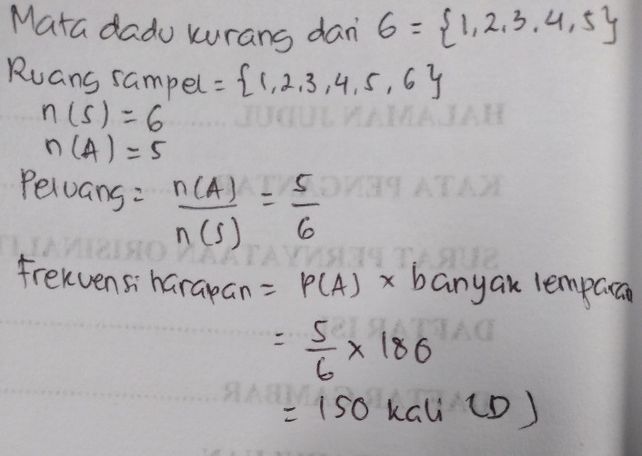 Mata dadu kurang dari 6 = {1,2,3,4,5}
Ruang sampel = {1,2,3,4,5,6}
n(S) = 6
n(A) = 5
Peluang = n(A)/n(S) = 5/6
Frekuensi harapan = P(A) × banyak lemparan
= 5/6 × 186
= 150 kali (D)
HALAMAN JUDUL
KATA PENGANTAR
SURAT PERNYATAAN ORISINALIT
DAFTAR ISI
DAFTAR GAMBAR